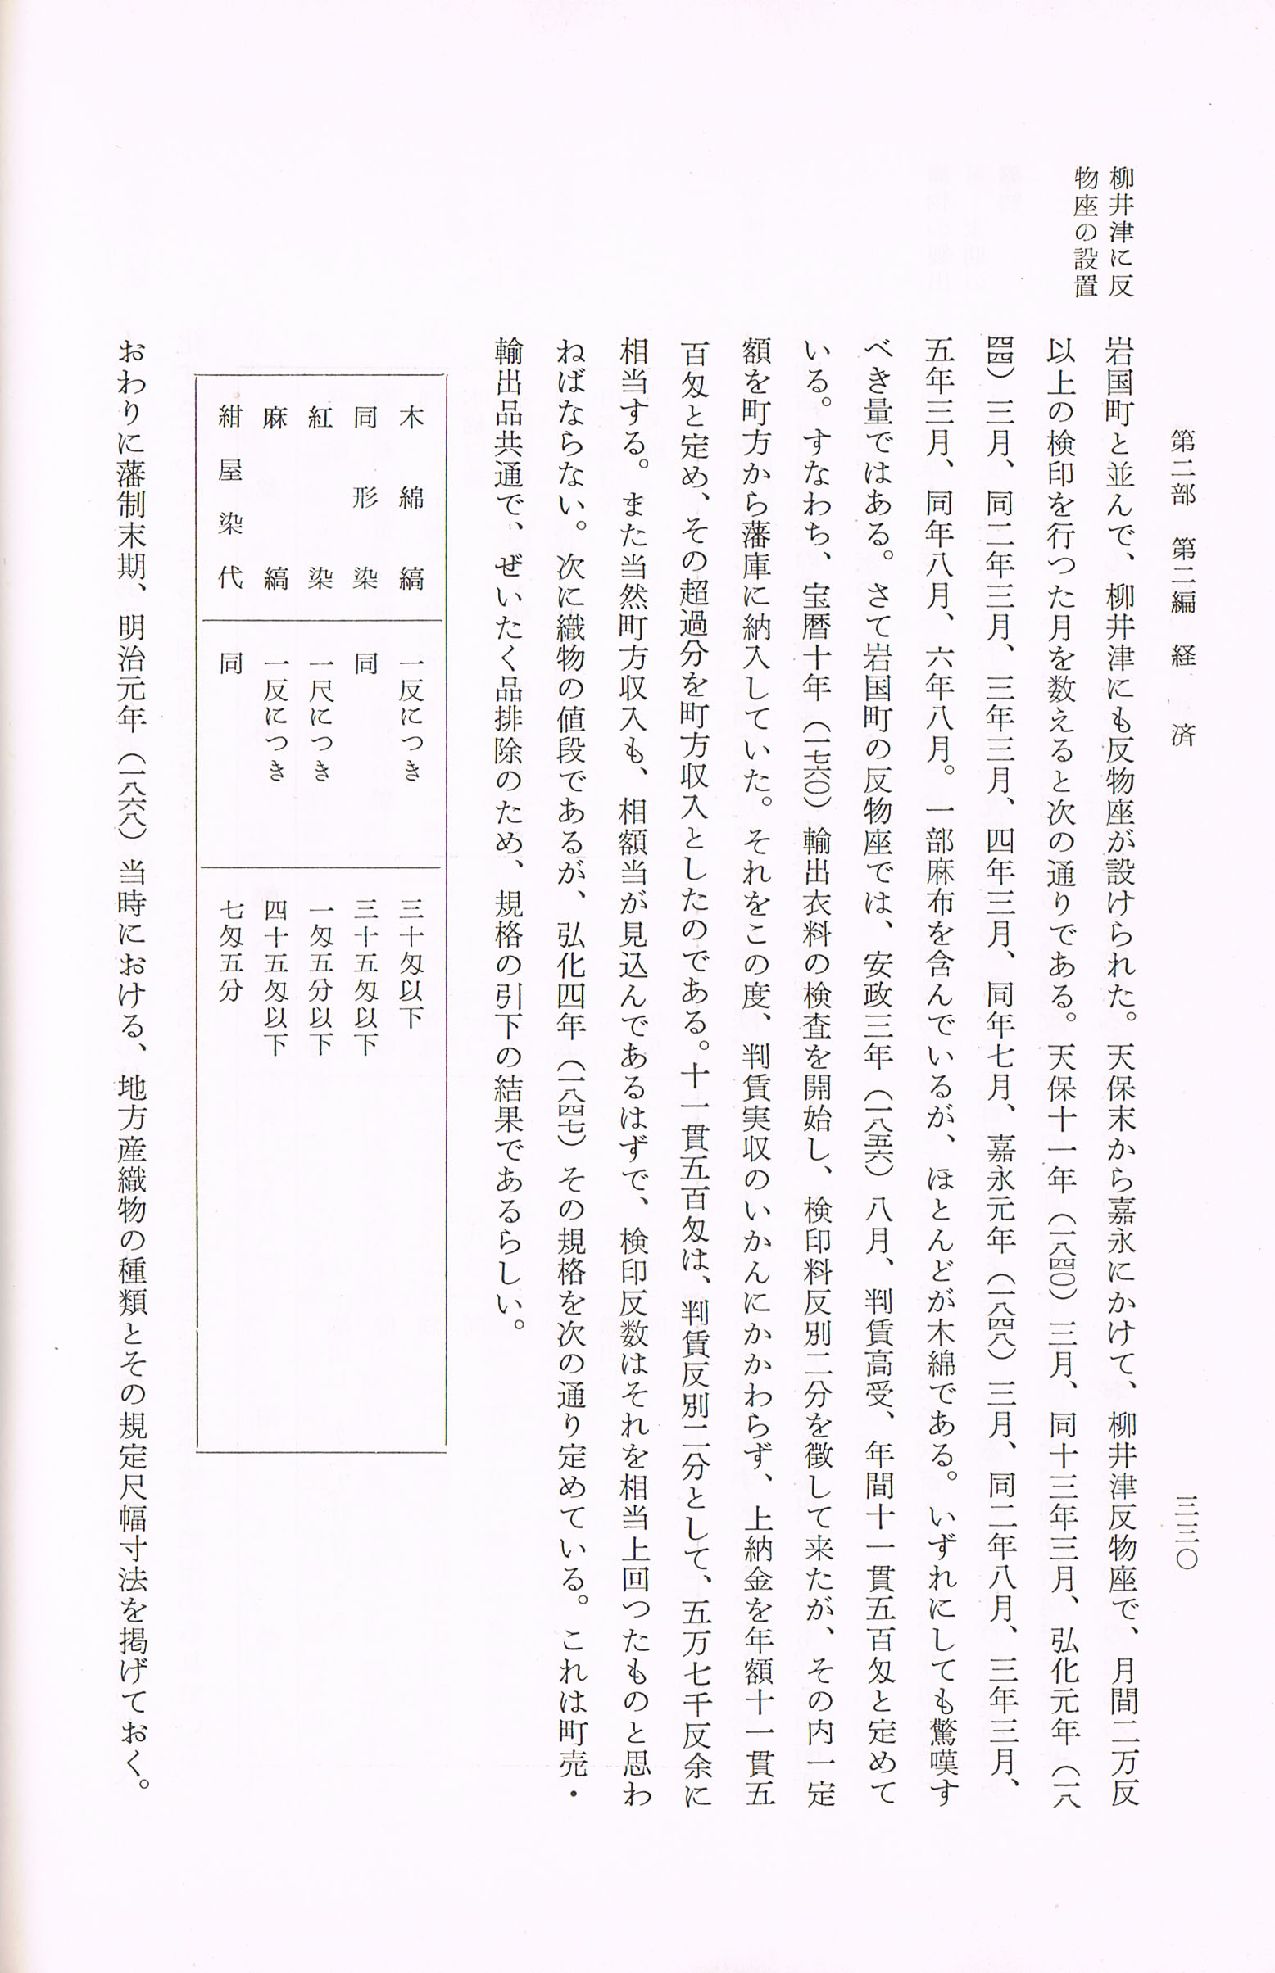 第二部　第二編　経　済
三三〇
柳井津に反
物座の設置
岩国町と並んで、柳井津にも反物座が設けられた。天保末から嘉永にかけて、柳井津反物座で、月間二万反
以上の検印を行つた月を数えると次の通りである。天保十一年（一八四〇）三月、同十三年三月、弘化元年（一八
四四）三月、同二年三月、三年三月、四年三月、同年七月、嘉永元年（一八四八）三月、同二年八月、三年三月、
五年三月、同年八月、六年八月。一部麻布を含んでいるが、ほとんどが木綿である。いずれにしても驚嘆す
べき量ではある。さて岩国町の反物座では、安政三年（一八五六）八月、判賃高受、年間十一貫五百匁と定めて
いる。すなわち、宝暦十年（一七六〇）輸出衣料の検査を開始し、検印料反別二分を徴して来たが、その内一定
額を町方から藩庫に納入していた。それをこの度、判賃実収のいかんにかかわらず、上納金を年額十一貫五
百匁と定め、その超過分を町方収入としたのである。十一貫五百匁は、判賃反別二分として、五万七千反余に
相当する。また当然町方収入も、相額当が見込んであるはずで、検印反数はそれを相当上回つたものと思わ
ねばならない。次に織物の値段であるが、弘化四年（一八四七）その規格を次の通り定めている。これは町売・
輸出品共通で、ぜいたく品排除のため、規格の引下の結果であるらしい。
木綿縞　一反につき　三十匁以下
同形染　同　三十五匁以下
紅染　一尺につき　一匁五分以下
麻縞　一反につき　四十五匁以下
紺屋染代　同　七匁五分
おわりに藩制末期、明治元年（一八六八）当時における、地方産織物の種類とその規定尺幅寸法を掲げておく。